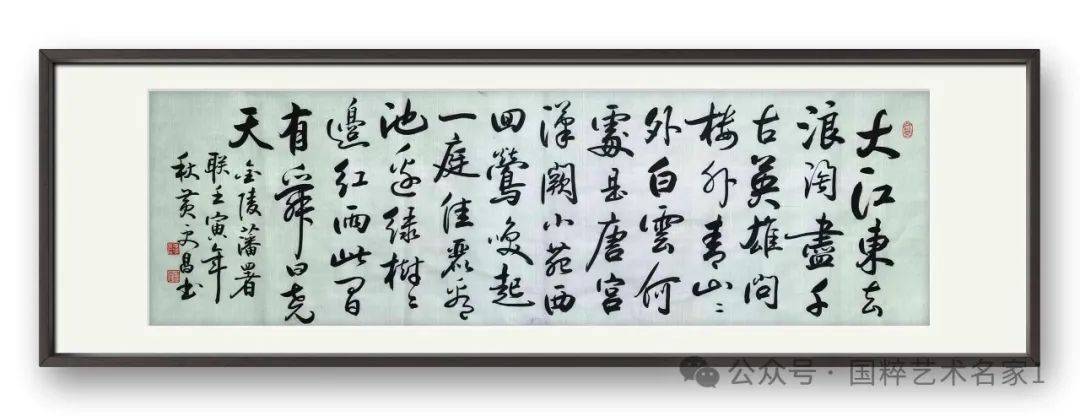 大江東去
浪淘盡千
古英雄問
楼外青山〻
外白雲何
處是唐宮
漢闕小苑西
回鶯喚起
一庭佳麗看
池邊綠樹〻
邊紅雨此間
有舜日堯
天
金陵藩署
联壬寅年
秋黄昌书
公众号 · 国粹艺术名家1